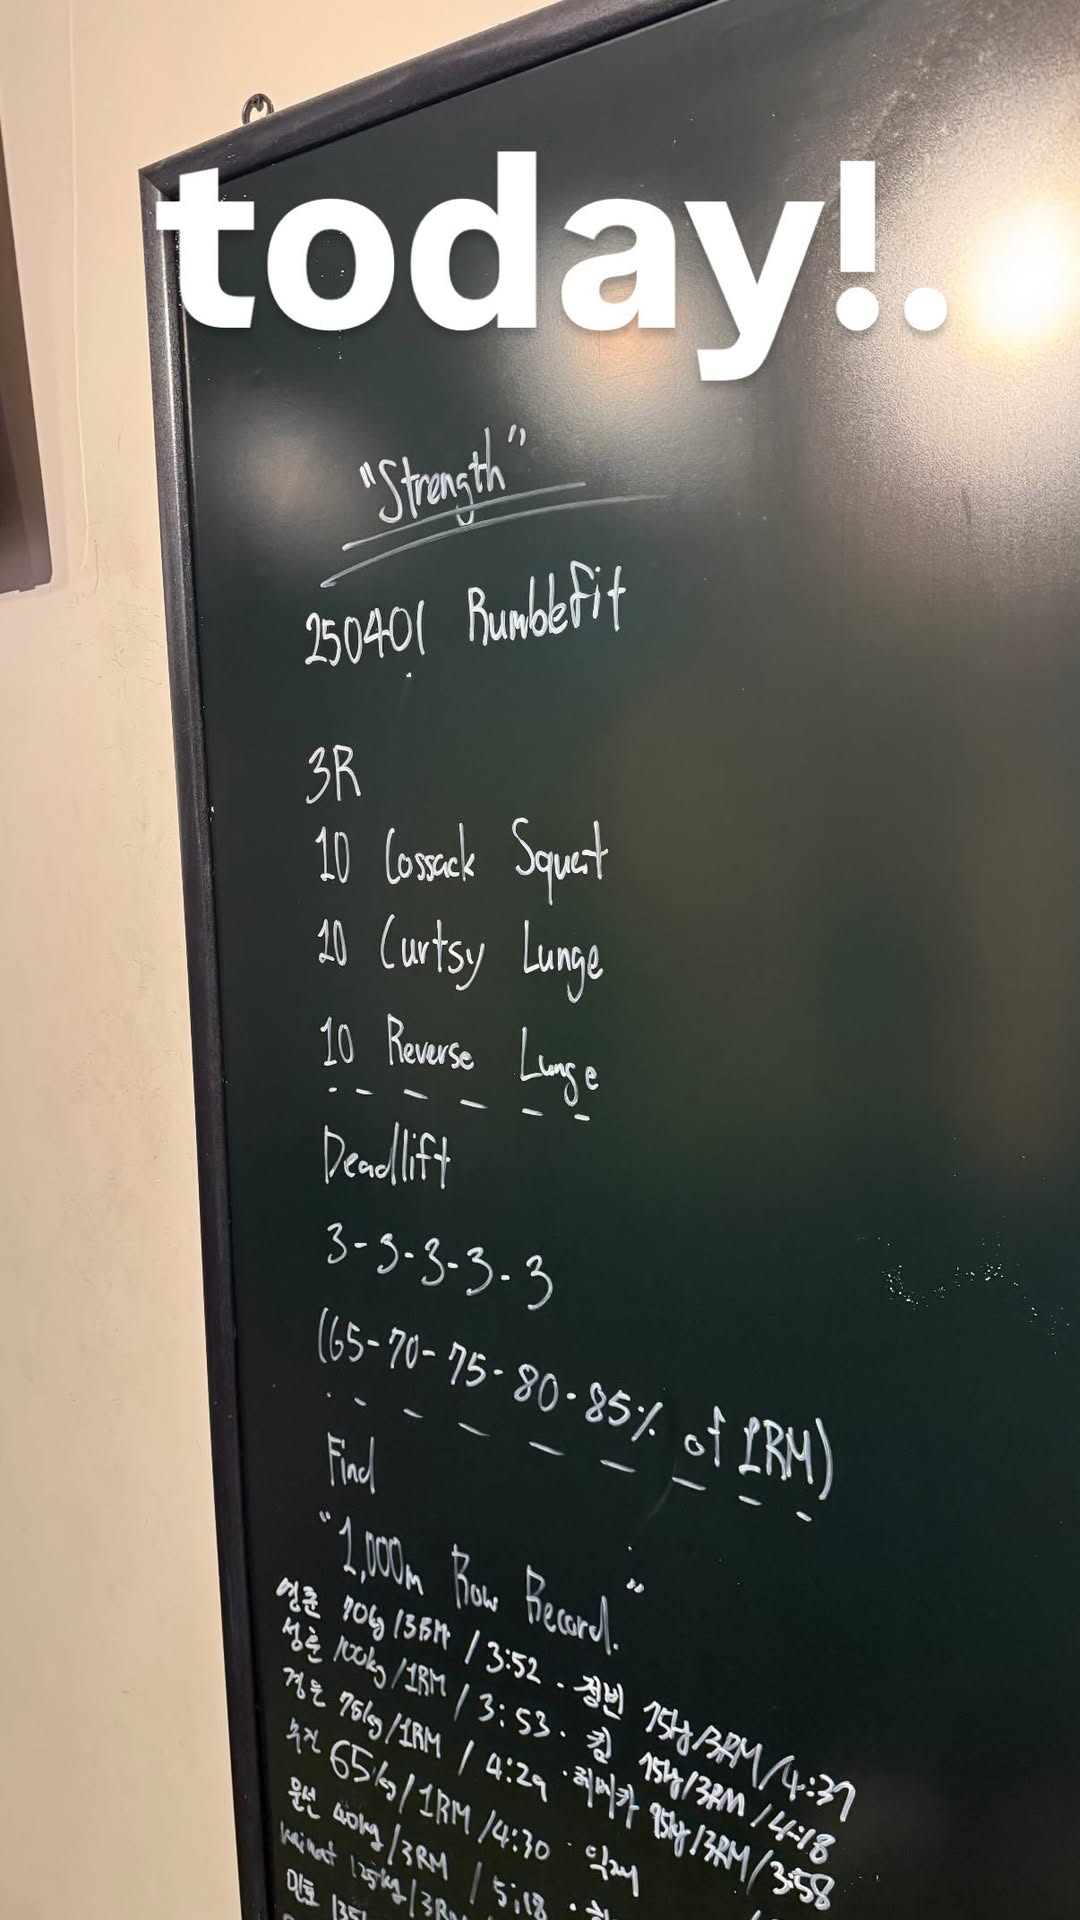 today!..
"Strength"
250401 Rumblefit
3R
10 Cossack Squat
10 Curtsy Lunge
10 Reverse Lunge
Deadlift
3-3-3-3-3
(65-70-75-80-85% of 1RM)
Find
"1,000m Row Record."
70kg/3RM / 3:52 · 정빈 75kg/3RM/4:37
성훈 100kg/1RM / 3:53 · 킴 75kg/3RM/4:18
75kg/1RM / 4:29 · 레베카 95kg/3RM/3:58
65kg/1RM/4:30 ·
윤선 40kg/3RM / 5:18 ·
125kg/3RM
민호